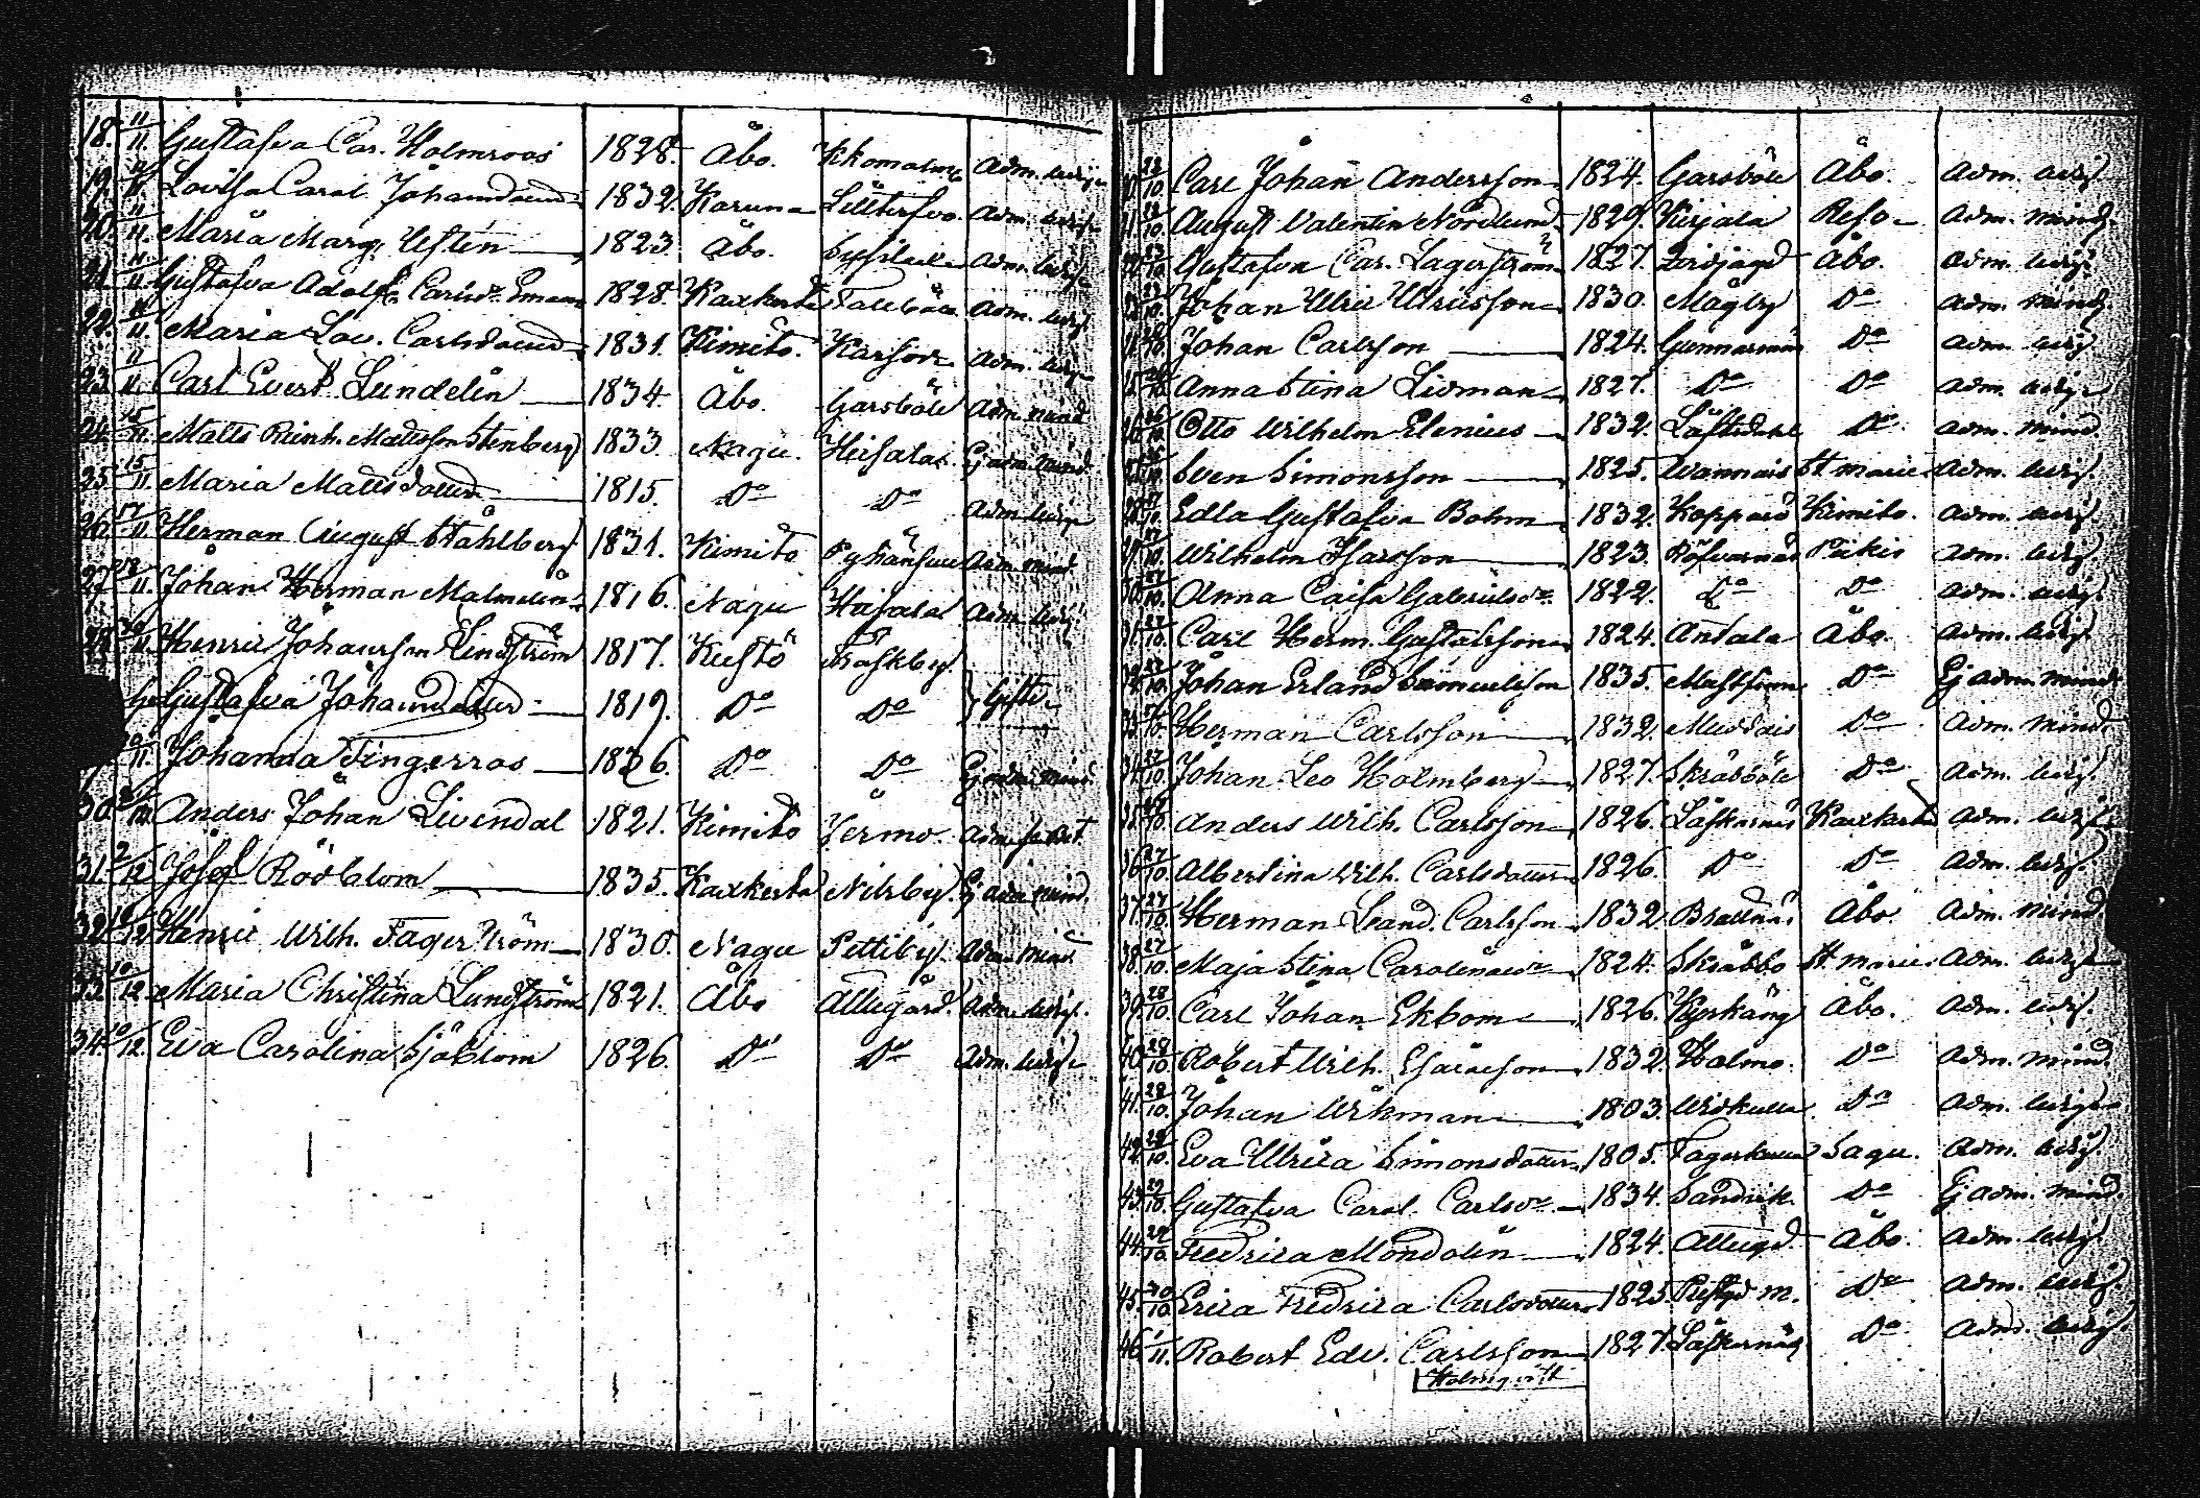 18. 11/11. Gustafva Car. Holmroos 1828. Åbo. Kkomalm Adm. ledig
19. 11/11. Lovisa Carol. Johansdotter 1832. Karuna Adm. ledig
20. 11/11. Maria Marg. Uftén 1823. Åbo. Sysilax Adm. ledig
21. 11/11. Gustafva Adolf. Carlsdr 1828. Kaxkerta Adm. ledig
22. 11/11. Maria Lov. Carlsdotter 1831. Kimito. Karsor Adm. ledig
23. 11/11. Carl Evert Lundelin 1834. Åbo. Garsböle Adm. mind.
24. 15/11. Matts Reinh. Mattsson Stenberg 1833. Nagu. Heisala. Ej adm. mind.
25. 15/11. Maria Mattsdotter 1815. Do Do Adm. ledig
26. 17/11. Herman August Ståhlberg 1831. Kimito Pyhänsuu Adm. mind.
27. 28/11. Johan Herman Malmelin 1816. Nagu Heisala Adm. ledig
28. /11. Henric Johansson Lindström 1817. Kustö Kraskby.
Gustafva Johansdotter 1819. Do Do } Gifte
/11. Johanna Fingerroos 1826. Do Do Ej adm. mind.
30. /12. Anders Johan Livendal 1821. Kimito Jermo. Adm.
31. 9/12. Josef Rödblom 1835. Kaxkerta Nilsby. Ej adm. mind.
32. 10/12. Henric Wilh. Fagerström 1830. Nagu Pettiby. Adm. mind.
33. 10/12. Maria Christina Lundström 1821. Åbo Allegård. Adm. ledig.
34. /12. Eva Carolina Sjöblom 1826. Do Do Adm. ledig
22/10. Carl Johan Andersson 1824. Garsböle Åbo. Adm. ledig.
22/10. August Valentin Nordlund 1829. Kirjala Reso Adm. mind.
23/10. Gustafva Car. Lagerström 1827. Åbo. Adm. ledig.
23/10. Johan Ulric Ulricsson 1830. Mågby Do Adm. mind.
/10. Johan Carlsson 1824. Gunnarnäs Do Adm. ledig.
/10. Anna Stina Lidman 1827. Do Do Adm. ledig
26/10. Otto Wilhelm Elenius 1832. Löfsdahl Do Adm. mind.
/10. Sven Simonsson 1825. Wannais St. Marie Adm. ledig.
27/10. Edla Gustafva Bohm 1832. Koppard Kimito. Adm. ledig.
27/10. Wilhelm Isacsson 1823. Röfvarnäs Pikis Adm. ledig.
27/10. Anna Caisa Gabrielsdr 1822. Do Do Adm. ledig.
27/10. Carl Herm. Gustafsson 1824. Antala Åbo. Adm. ledig
27/10. Johan Erland Samuelsson 1835. Mustfinn Do Ej adm. mind.
27/10. Herman Carlsson 1832. Muddais Do Adm. mind.
27/10. Johan Leo Holmberg 1827. Skräbböle Do Adm. ledig.
27/10. Anders Wilh. Carlsson 1826. Läskarnäs Kaxkerta Adm. ledig
36. 27/10. Albertina Wilh. Carlsdotter 1826. Do Do Adm. ledig.
37. 27/10. Herman Leand. Carlsson 1832. Brattnäs Åbo. Adm. mind.
38. 27/10. Maja Stina Carolinasdr 1824. Skräbbo St. Marie Adm. ledig
39. 28/10. Carl Johan Ekbom 1826. Kyrkäng Åbo. Adm. ledig.
40. 28/10. Robert Wilh. Esaiasson 1832. Holmo. Do Adm. mind.
41. 28/10. Johan Wikman 1803. Widkulla Do Adm. ledig
42. 28/10. Eva Ulrica Simonsdotter 1805. Fagerkulla Sagu. Adm. ledig.
43. 29/10. Gustafva Carol. Carlsdr 1834. Sandvik. Do Ej adm. mind.
44. 29/10. Fredrica Mondolin 1824. Allegd. Åbo. Adm. ledig.
45. 30/10. Erica Fredrica Carlsdotter 1825. Prestgd M. Do Adm. ledig.
46. 1/11. Robert Edv. Carlsson 1827. Läskarnäs Do Adm. ledig.
Holmqvist